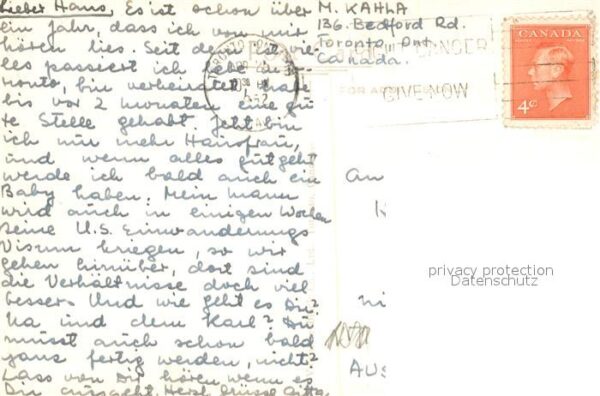 Lieber Hans, Es ist schon über
ein Jahr, dass ich von mir
hören lies. Seit dem ist vie-
les passiert ich lebe in To-
ronto, bin verheiratet, habe
bis vor 2 monaten eine gu-
te Stelle gehabt. Jetzt bin
ich nur mehr Hausfrau,
und wenn alles gut geht
werde ich bald auch ein
Baby haben. Mein mann
wird auch in einigen Wochen
seine U.S. Einwanderungs
Visum kriegen, so wir
gehen hinüber, dort sind
die Verhältnisse doch viel
besser. Und wie geht es Dir?
Na und dem Karl? Du
musst auch schon bald
ganz fertig werden, nicht?
Lass von Dir hören, wenn es
Dir ausgeht. Herzl. Grüsse Gitta
M. KAHLA
136. Bedford Rd.
Toronto, Ont.
Canada.
TORONTO
CANCER
GIVE NOW
FOR
CANADA
POSTES POSTAGE
4¢
An
AUS
privacy protection
Datenschutz